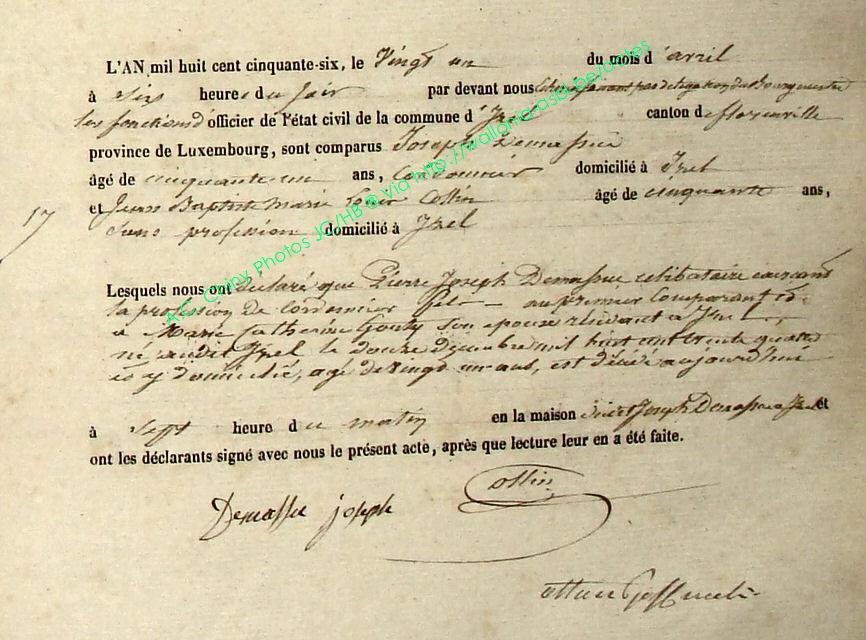 L'AN mil huit cent cinquante-six, le Vingt un du mois d'avril
à six heures du soir par devant nous Echevin faisant par délégation du Bourgmestre
les fonctions d'officier de l'état civil de la commune d'Izel canton de florenville
province de Luxembourg, sont comparus Joseph Demasse
âgé de cinquante un ans, Cordonnier domicilié à Izel
et Jean Baptiste Marie Collin âgé de cinquante ans,
17
sans profession domicilié à Izel
Lesquels nous ont déclaré que Pierre Joseph Demasse célibataire exerçant
la profession de Cordonnier fils au premier Comparant et
a Marie Catherine son épouse résidant a Izel
né audit Izel le douze Décembre mil huit cent trente quatre
et y domicilié, agé de vingt un ans, est décédé aujourd'hui
à sept heure du matin en la maison dudit Joseph Demasse a Izel et
ont les déclarants signé avec nous le présent acte, après que lecture leur en a été faite.
Demasse joseph Collin
Photos JC/HB @ Via http://wallonia-asbl.be/actes